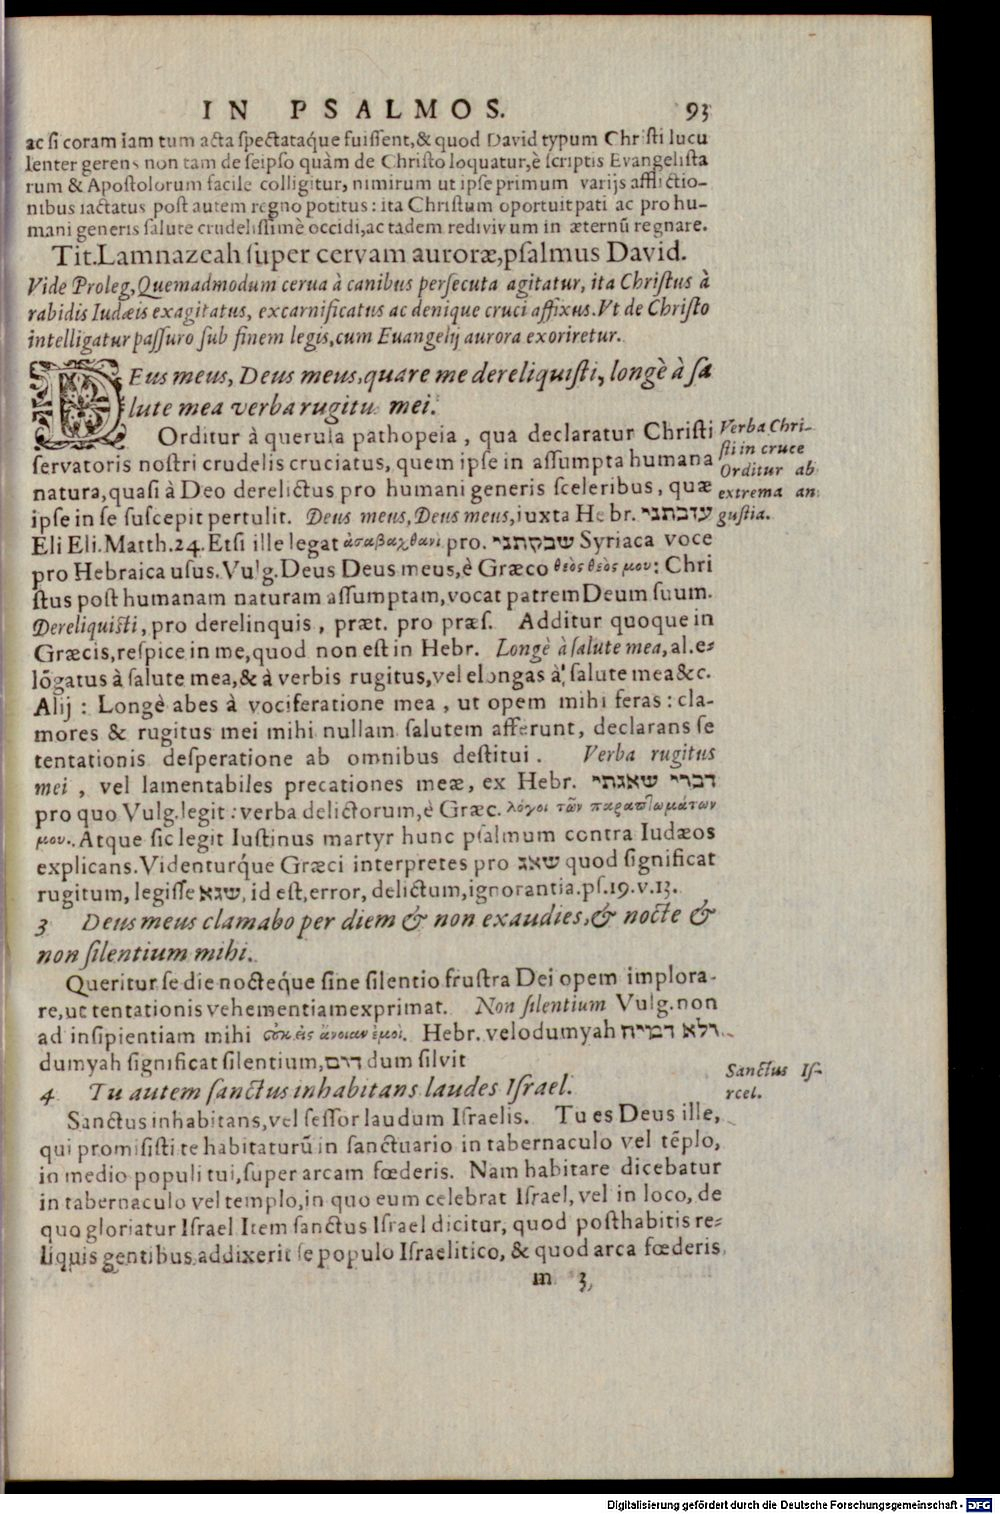 IN PSALMOS. 93
ac si coram iam tum acta spectataq́ue fuissent, & quod David typum Christi lucu
lenter gerens non tam de seipso quàm de Christo loquatur, è scriptis Evangelista
rum & Apostolorum facile colligitur, nimirum ut ipse primum varijs afflictio-
nibus iactatus post autem regno potitus: ita Christum oportuit pati ac pro hu-
mani generis salute crudelissimè occidi, ac tadem redivivum in æternū regnare.
Tit. Lamnazeah super cervam auroræ, psalmus David.
Vide Proleg, Quemadmodum cerua à canibus persecuta agitatur, ita Christus à
rabidis Iudæis exagitatus, excarnificatus ac denique cruci affixus. Vt de Christo
intelligatur passuro sub finem legis, cum Euangelij aurora exoriretur.
DEus meus, Deus meus, quare me dereliquisti, longè à sa
lute mea verba rugitu mei.
Orditur à querula pathopeia, qua declaratur Christi
servatoris nostri crudelis cruciatus, quem ipse in assumpta humana
natura, quasi à Deo derelictus pro humani generis sceleribus, quæ
ipse in se suscepit pertulit. Deus meus, Deus meus, iuxta Hebr. עזבתני
Verba Chri-
sti in cruce
Orditur ab
extrema an
gustia.
Eli Eli. Matth. 24. Etsi ille legat ἀσαβαχθανὶ pro. שבקתני Syriaca voce
pro Hebraica usus. Vulg. Deus Deus meus, è Græco θεὸς θεὸς μου: Chri
stus post humanam naturam assumptam, vocat patrem Deum suum.
Dereliquisti, pro derelinquis, præt. pro præs. Additur quoque in
Græcis, respice in me, quod non est in Hebr. Longè à salute mea, al. e-
lōgatus à salute mea, & à verbis rugitus, vel elongas à salute mea &c.
Alij: Longè abes à vociferatione mea, ut opem mihi feras: cla-
mores & rugitus mei mihi nullam salutem afferunt, declarans se
tentationis desperatione ab omnibus destitui. Verba rugitus
mei, vel lamentabiles precationes meæ, ex Hebr. דברי שאגתי
pro quo Vulg. legit: verba delictorum, è Græc. λόγοι τῶν παραπτωμάτων
μου. Atque sic legit Iustinus martyr hunc psalmum contra Iudæos
explicans. Videnturq́ue Græci interpretes pro שאג quod significat
rugitum, legisse שגא, id est, error, delictum, ignorantia. ps. 19. v. 13.
3 Deus meus clamabo per diem & non exaudies, & nocte &
non silentium mihi.
Queritur se die nocteq́ue sine silentio frustra Dei opem implora-
re, ut tentationis vehementiam exprimat. Non silentium Vulg. non
ad insipientiam mihi οὐκ εἰς ἄνοιαν ἐμοὶ. Hebr. velodumyah ולא דמיה
dumyah significat silentium, דום dum silvit
4 Tu autem sanctus inhabitans laudes Israel.
Sanctus Is-
rael.
Sanctus inhabitans, vel sessor laudum Israelis. Tu es Deus ille,
qui promisisti te habitaturū in sanctuario in tabernaculo vel tēplo,
in medio populi tui, super arcam fœderis. Nam habitare dicebatur
in tabernaculo vel templo, in quo eum celebrat Israel, vel in loco, de
quo gloriatur Israel Item sanctus Israel dicitur, quod posthabitis re-
liquis gentibus addixerit se populo Israelitico, & quod arca fœderis
m 3
Digitalisierung gefördert durch die Deutsche Forschungsgemeinschaft - DFG